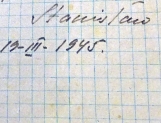 Stanislao
19-III-1945.